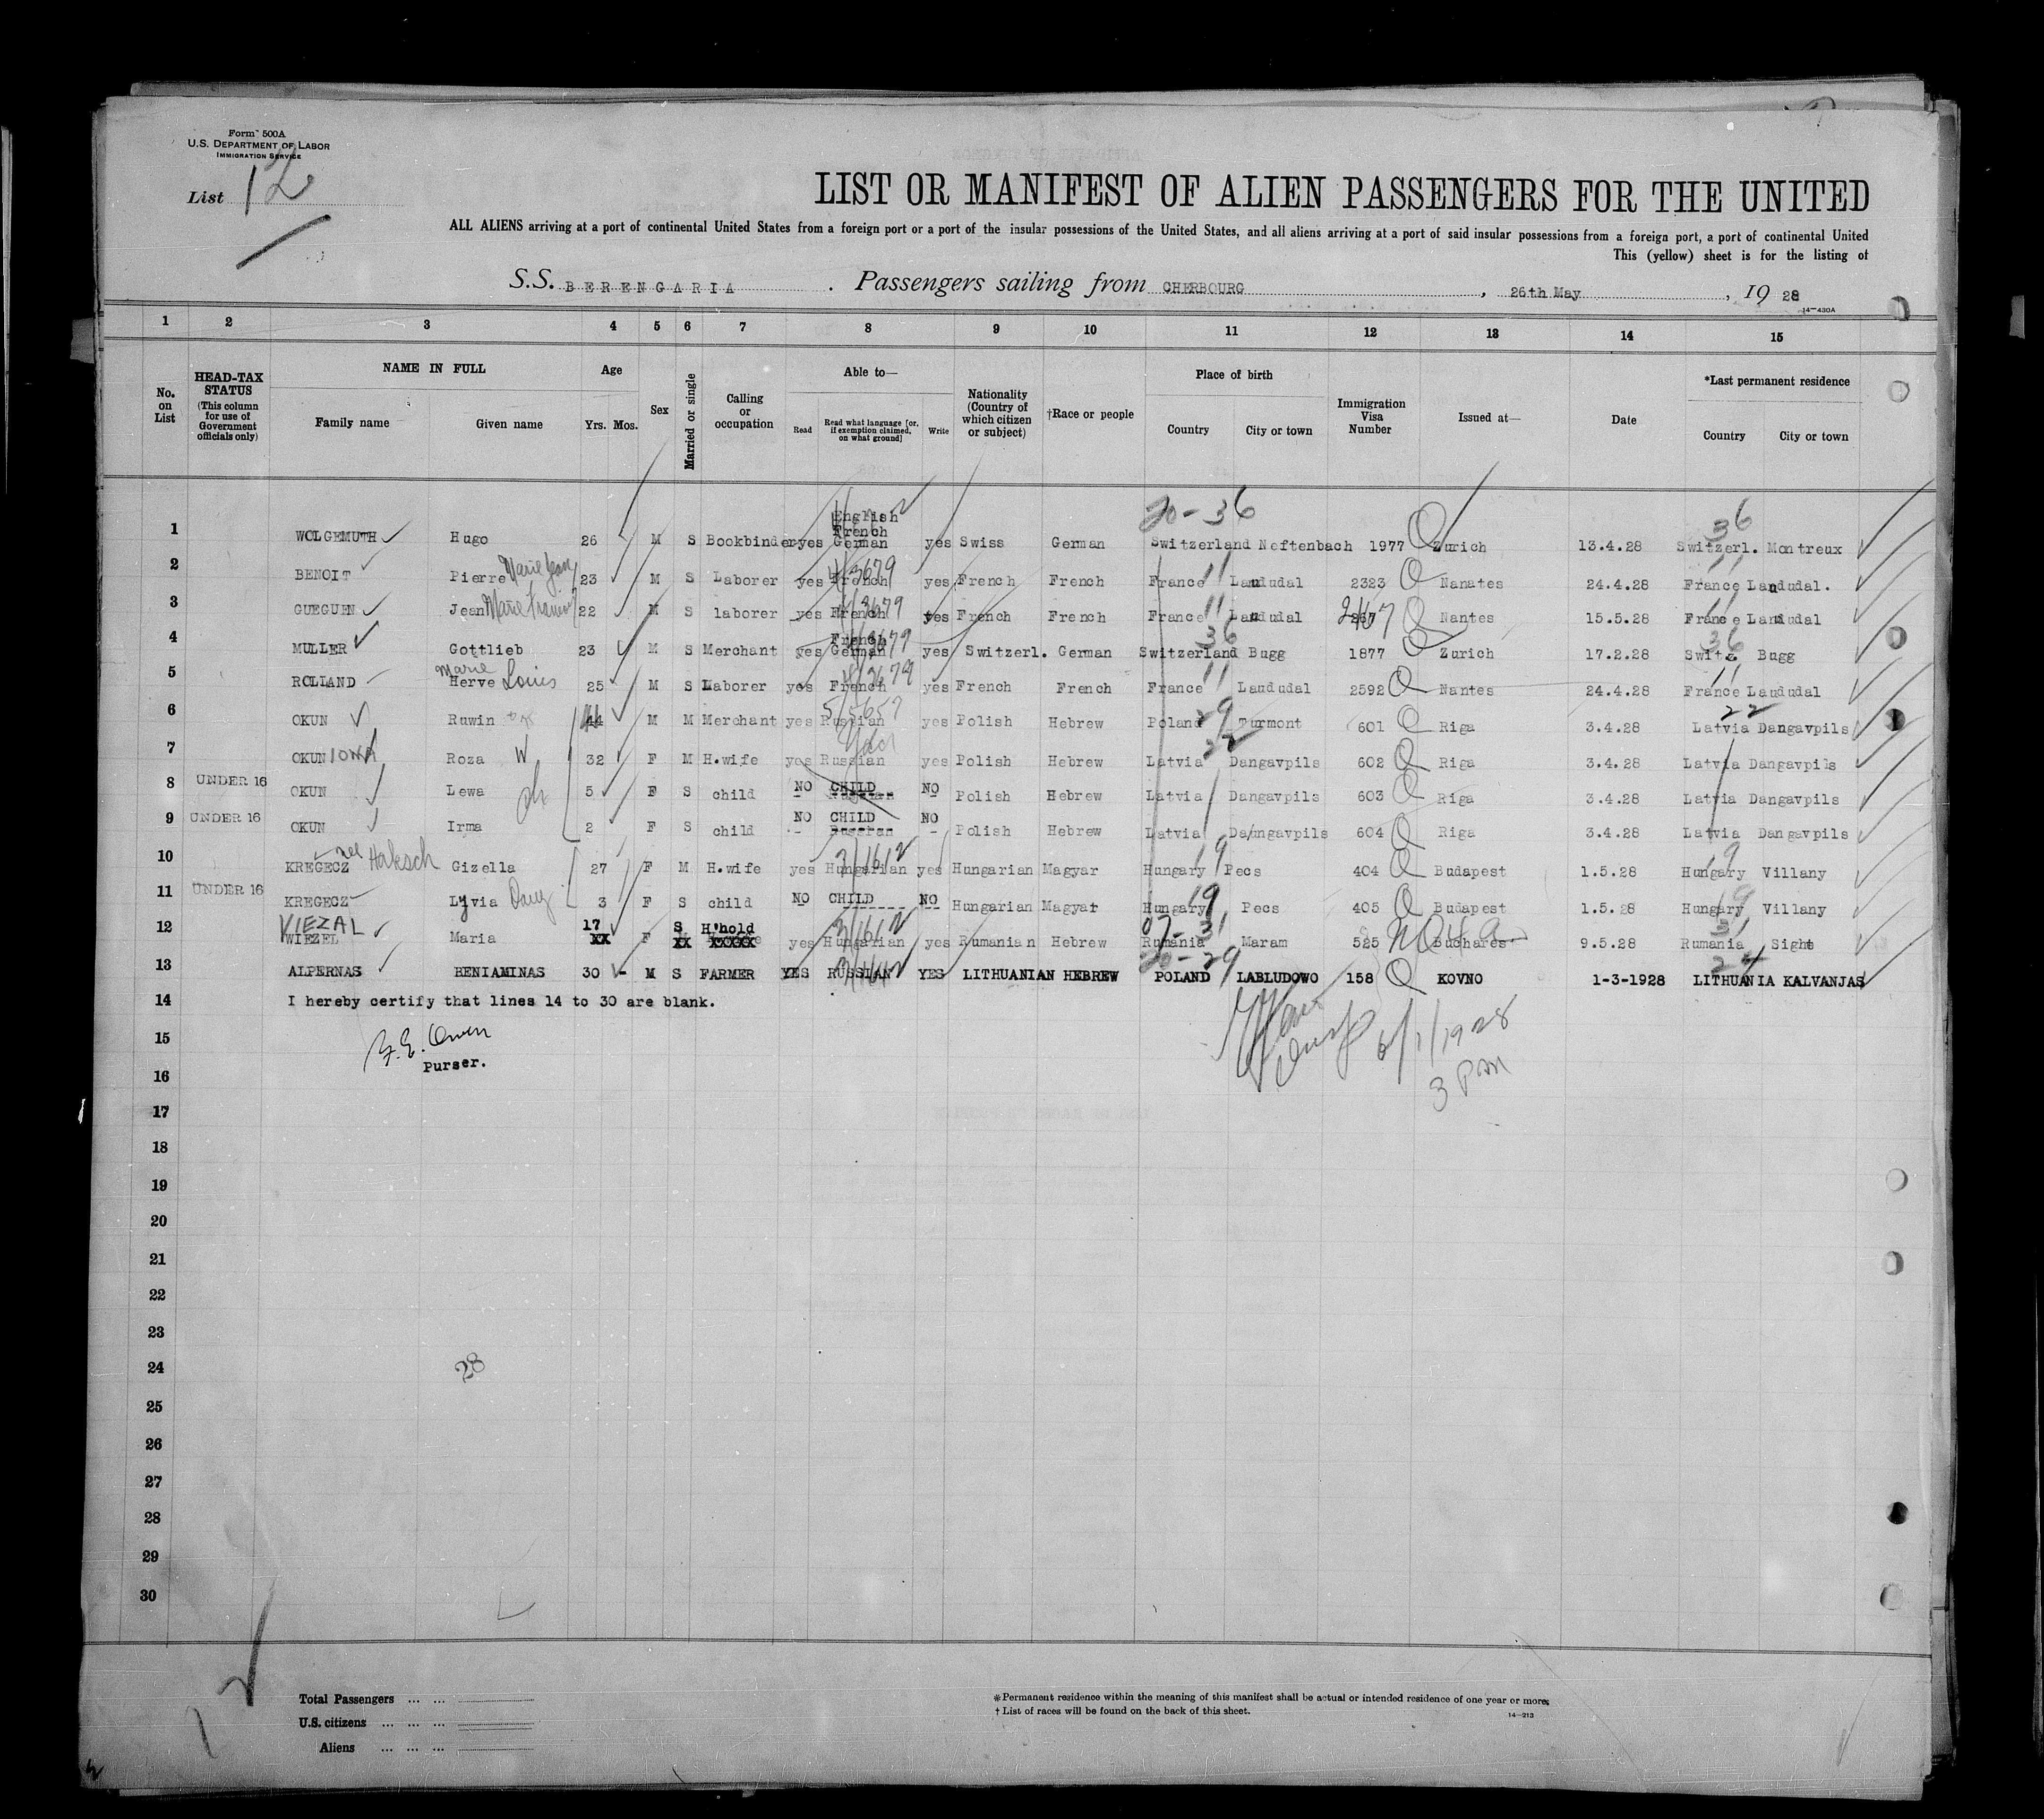 Form 500A
U.S. DEPARTMENT OF LABOR
IMMIGRATION SERVICE
List 12
LIST OR MANIFEST OF ALIEN PASSENGERS FOR THE UNITED
ALL ALIENS arriving at a port of continental United States from a foreign port or a port of the insular possessions of the United States, and all aliens arriving at a port of said insular possessions from a foreign port, a port of continental United
This (yellow) sheet is for the listing of
S.S. BERENGARIA . Passengers sailing from CHERBOURG , 26th May , 19 28
14-430A
1 2 3 4 5 6 7 8 9 10 11 12 13 14 15
No. on List HEAD-TAX STATUS (This column for use of Government officials only) NAME IN FULL Family name Given name Age Yrs. Mos. Sex Married or single Calling or occupation Able to— Read Read what language [or, if exemption claimed, on what ground] Write Nationality (Country of which citizen or subject) †Race or people Place of birth Country City or town Immigration Visa Number Issued at— Date *Last permanent residence Country City or town
20-36 36
1 WOLGEMUTH Hugo 26 M S Bookbinder yes English French German yes Swiss German Switzerland Neftenbach 1977 Zurich 13.4.28 Switzerl. Montreux
2 BENOIT Pierre Marie Jean 23 M S Laborer yes French yes French French France 11 Laududal 2323 Nanates 24.4.28 France 11 Laududal.
3 GUEGUEN Jean Marie 22 M S laborer yes French yes French French France 11 Laududal 2467 Nantes 15.5.28 France 11 Laududal
4 MULLER Gottlieb 23 M S Merchant yes French German yes Switzerl. German Switzerland 36 Bugg 1877 Zurich 17.2.28 Switz 36 Bugg
5 ROLLAND Marie Herve Louis 25 M S Laborer yes French yes French French France 11 Laududal 2592 Nantes 24.4.28 France 11 Laududal
6 OKUN Ruwin 44 M M Merchant yes Russian yes Polish Hebrew Poland 29 Turmont 601 Riga 3.4.28 Latvia 22 Dangavpils
7 OKUN Roza W 32 F M H.wife yes Russian yes Polish Hebrew Latvia 22 Dangavpils 602 Riga 3.4.28 Latvia Dangavpils
8 UNDER 16 OKUN Lewa 5 F S child NO CHILD NO Polish Hebrew Latvia Dangavpils 603 Riga 3.4.28 Latvia Dangavpils
9 UNDER 16 OKUN Irma 2 F S child NO CHILD NO Polish Hebrew Latvia Daungavpils 604 Riga 3.4.28 Latvia Dangavpils
10 KREGECZ nee Gizella 27 M H.wife yes Hungarian yes Hungarian Magyar Hungary 19 Pecs 404 Budapest 1.5.28 Hungary 19 Villany
11 UNDER 16 KREGECZ Lyvia 3 F S child NO CHILD NO Hungarian Magyar Hungary 19 Pecs 405 Budapest 1.5.28 Hungary 19 Villany
12 VIEZAL WIEZEL Maria 17 XX F S XX H'hold XXXXX yes Hungarian yes Rumanian Hebrew Rumania 31 Maram 525 Buchares 9.5.28 Rumania 31 Sight
13 ALPERNAS BENIAMINAS 30 M S FARMER YES RUSSIAN YES LITHUANIAN HEBREW POLAND 29 LABLUDOWO 158 KOVNO 1-3-1928 LITHUANIA KALVANJAS
14 I hereby certify that lines 14 to 30 are blank.
15 Owen
Purser.
6/1/1928
3 PM
16
17
18
19
20
21
22
23
24 28
25
26
27
28
29
30
Total Passengers ... ...
U.S. citizens ... ... ...
Aliens ... ... ...
*Permanent residence within the meaning of this manifest shall be actual or intended residence of one year or more.
† List of races will be found on the back of this sheet.
14-213